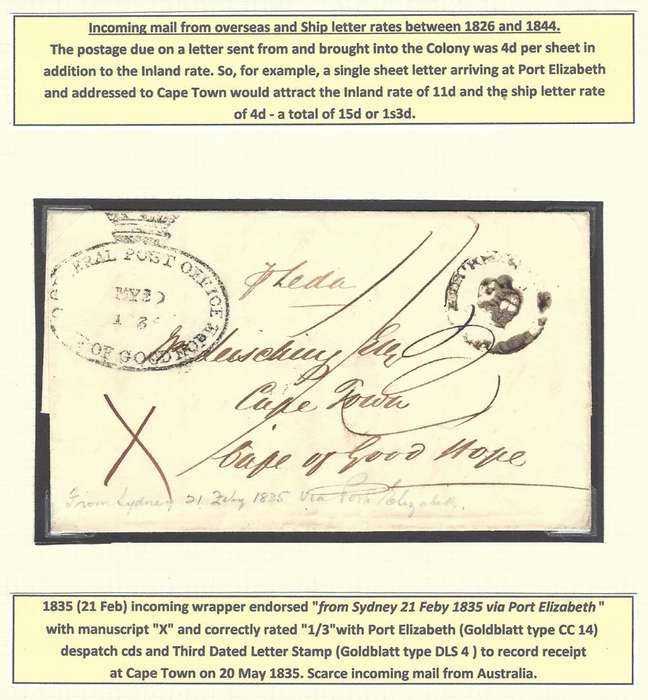 Incoming mail from overseas and Ship letter rates between 1826 and 1844.
The postage due on a letter sent from and brought into the Colony was 4d per sheet in
addition to the Inland rate. So, for example, a single sheet letter arriving at Port Elizabeth
and addressed to Cape Town would attract the Inland rate of 11d and the ship letter rate
of 4d - a total of 15d or 1s3d.
GENERAL POST OFFICE
OF GOOD HOPE
Leda
1/3
Esq
Cape Town
Cape of Good Hope
X
From Sydney 21 Feby 1835 via Port Elizabeth.
1835 (21 Feb) incoming wrapper endorsed "from Sydney 21 Feby 1835 via Port Elizabeth"
with manuscript "X" and correctly rated "1/3"with Port Elizabeth (Goldblatt type CC 14)
despatch cds and Third Dated Letter Stamp (Goldblatt type DLS 4 ) to record receipt
at Cape Town on 20 May 1835. Scarce incoming mail from Australia.